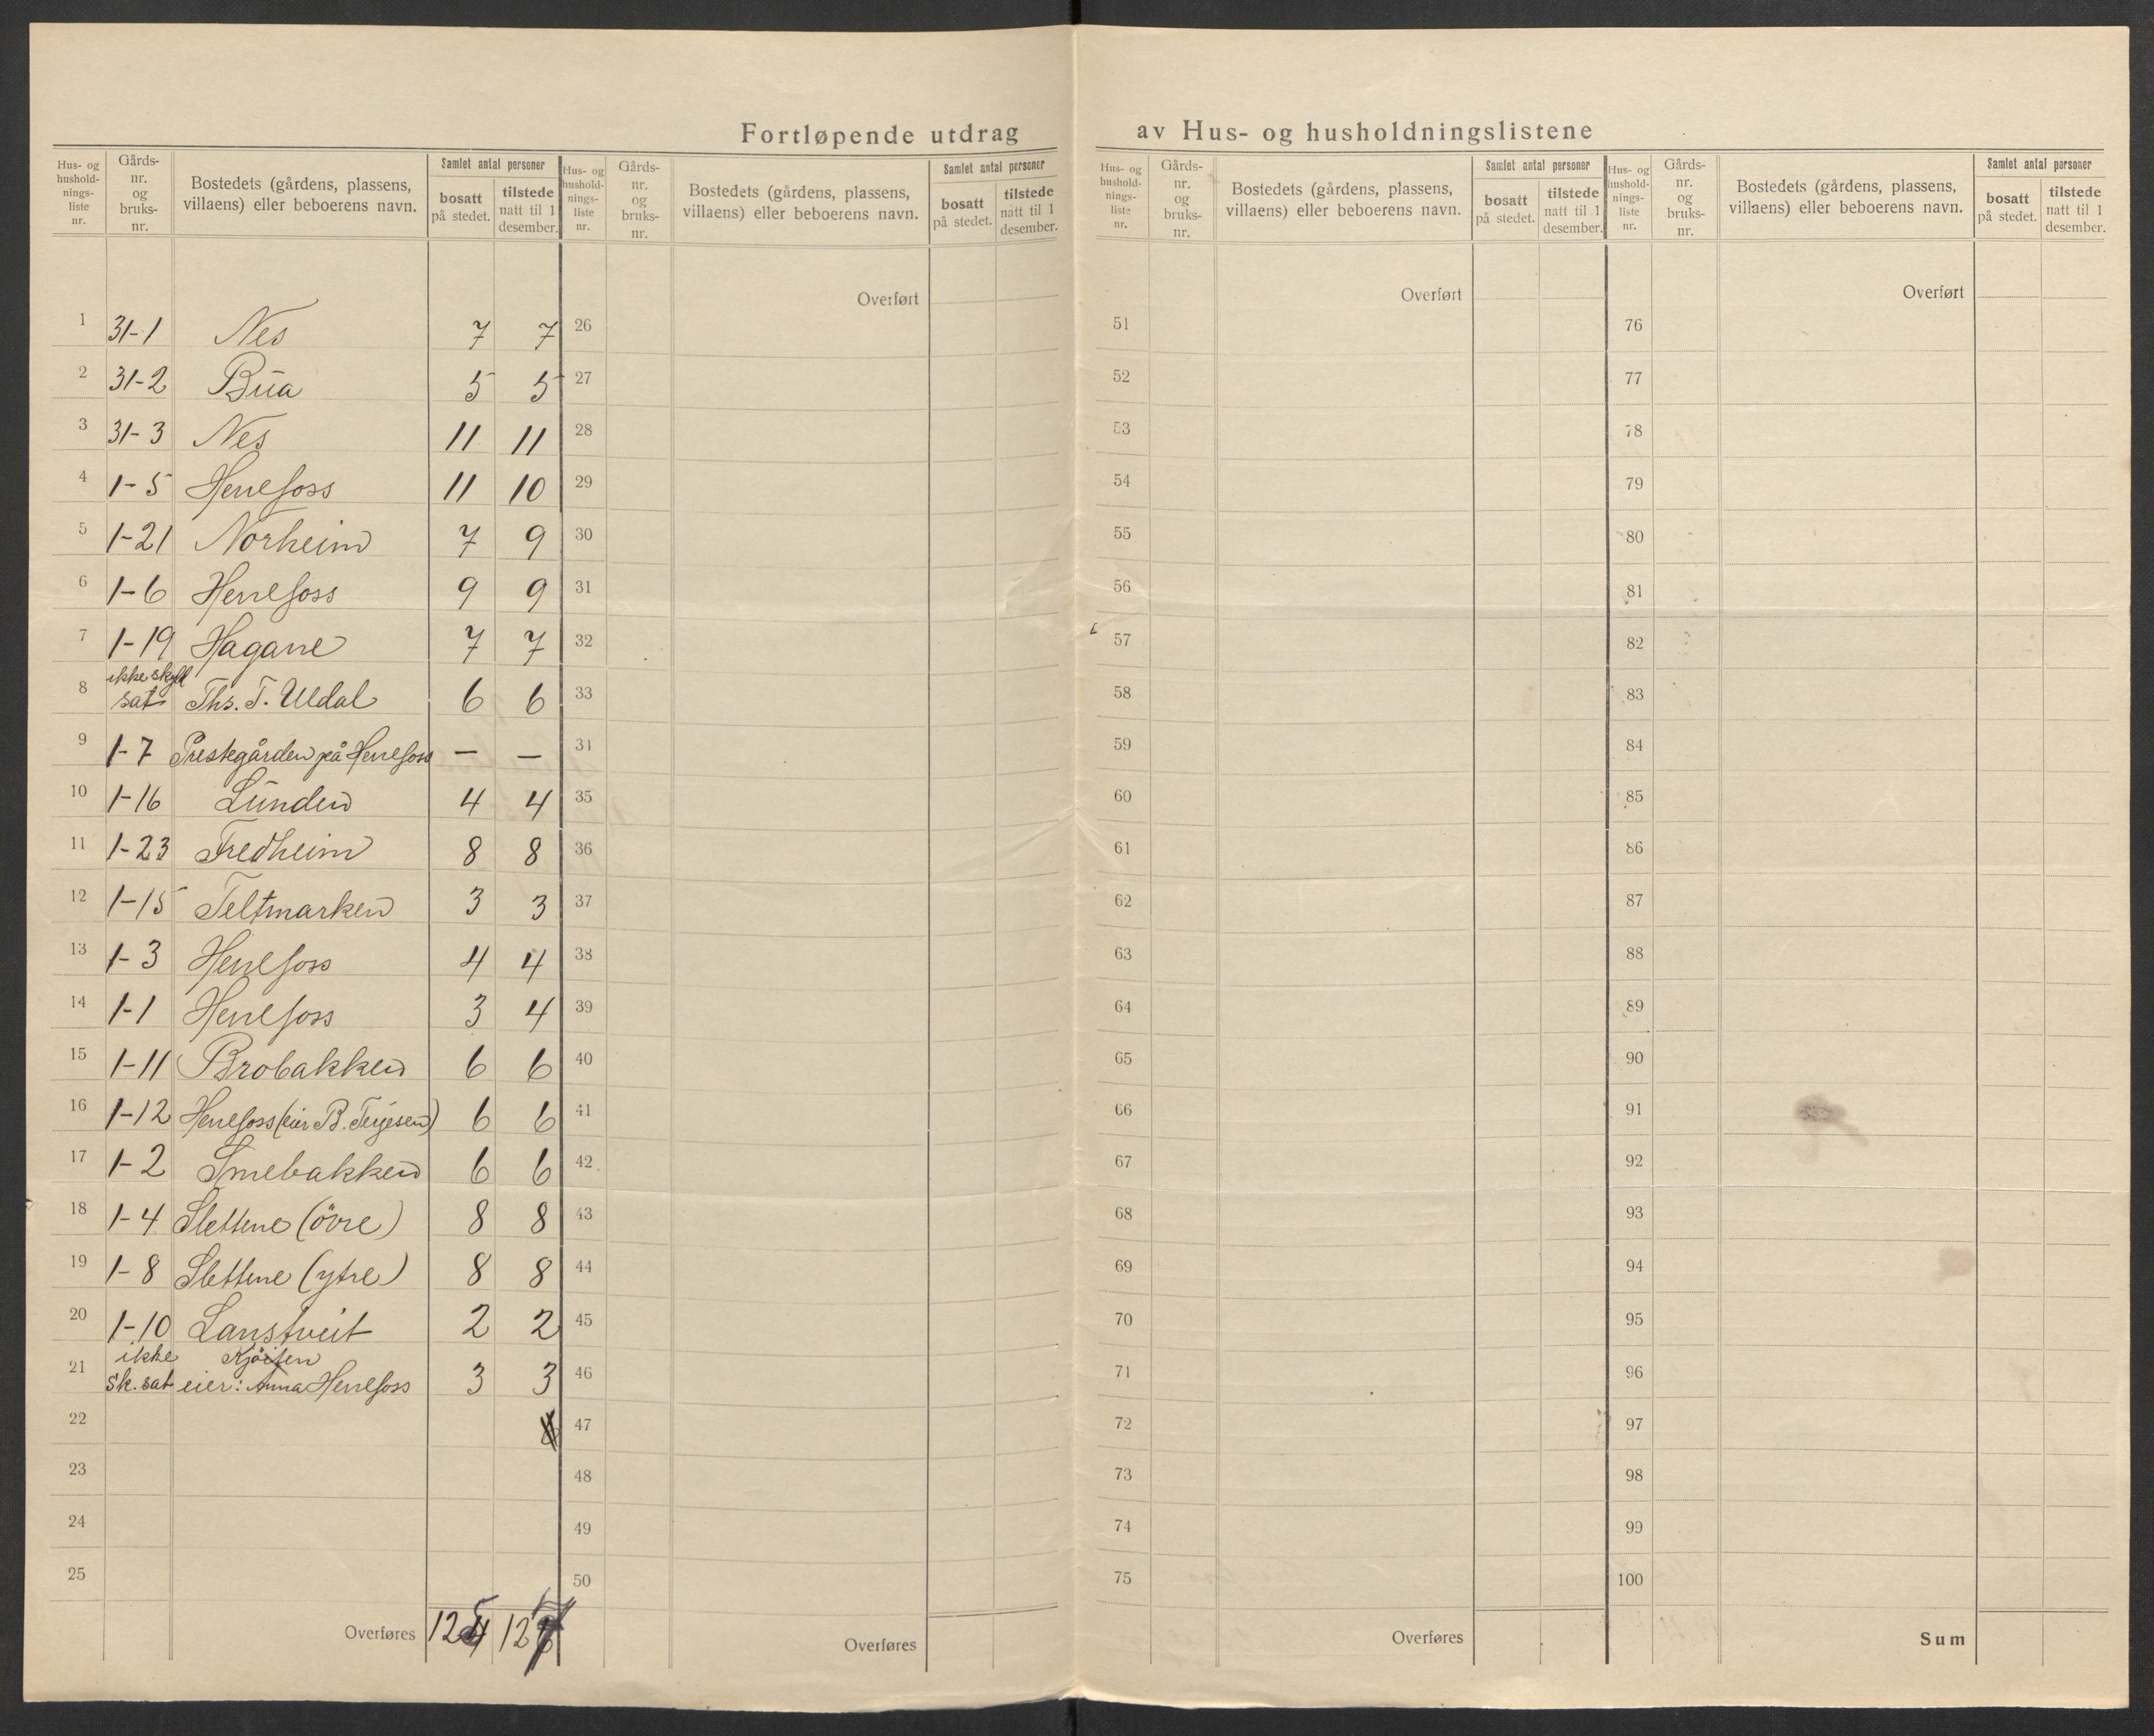 Fortløpende utdrag av Hus- og husholdningslistene
Hus- og hushold-nings-liste nr. Gårds-nr. og bruks-nr. Bostedets (gårdens, plassens, villaens) eller beboerens navn. Samlet antal personer bosatt på stedet. tilstede natt til 1 desember.
Hus- og hushold-nings-liste nr. Gårds-nr. og bruks-nr. Bostedets (gårdens, plassens, villaens) eller beboerens navn. Samlet antal personer bosatt på stedet. tilstede natt til 1 desember.
Hus- og hushold-nings-liste nr. Gårds-nr. og bruks-nr. Bostedets (gårdens, plassens, villaens) eller beboerens navn. Samlet antal personer bosatt på stedet. tilstede natt til 1 desember.
Hus- og hushold-nings-liste nr. Gårds-nr. og bruks-nr. Bostedets (gårdens, plassens, villaens) eller beboerens navn. Samlet antal personer bosatt på stedet. tilstede natt til 1 desember.
Overført Overført Overført
1 31-1 Nes 7 7 26 51 76
2 31-2 Bua 5 5 27 52 77
3 31-3 Nes 11 11 28 53 78
4 1-5 Herefoss 11 10 29 54 79
5 1-21 Norheim 7 9 30 55 80
6 1-6 Herefoss 9 9 31 56 81
7 1-19 Hagane 7 7 32 57 82
ikke skyld
8 sat Ths. T. Uldal 6 6 33 58 83
9 1-7 Prestegården på Herefoss — — 31 59 84
10 1-16 Lunden 4 4 35 60 85
11 1-23 Fredheim 8 8 36 61 86
12 1-15 Teltmarken 3 3 37 62 87
13 1-3 Herefoss 4 4 38 63 88
14 1-1 Herefoss 3 4 39 64 89
15 1-11 Brobakken 6 6 40 65 90
16 1-12 Herefoss (eier B. Terjesen) 6 6 41 66 91
17 1-2 Smebakken 6 6 42 67 92
18 1-4 Slettene (övre) 8 8 43 68 93
19 1-8 Slettene (ytre) 8 8 44 69 94
20 1-10 Lanstveit 2 2 45 70 95
ikke
21 sk. sat eier: Anna Herefoss 3 3 46 71 96
22 47 72 97
23 48 73 98
24 49 74 99
25 50 75 100
Overføres 125 127 Overføres Overføres Sum